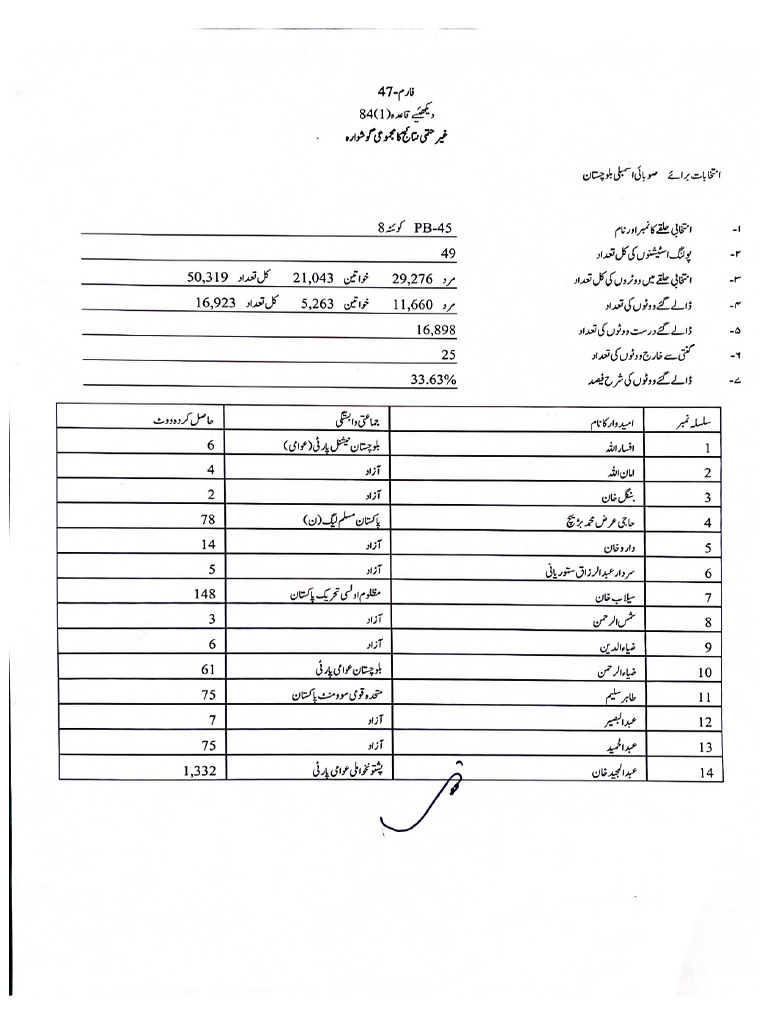 فارم-47
دیکھئیے قاعدہ (1)84
غیر حتمی نتائج کا مجموعی گوشوارہ
انتخابات برائے صوبائی اسمبلی بلوچستان
۱- انتخابی حلقے کا نمبر اور نام PB-45 کوئٹہ 8
۲- پولنگ اسٹیشنوں کی کل تعداد 49
۳- انتخابی حلقے میں ووٹروں کی کل تعداد مرد 29,276 خواتین 21,043 کل تعداد 50,319
۴- ڈالے گئے ووٹوں کی تعداد مرد 11,660 خواتین 5,263 کل تعداد 16,923
۵- ڈالے گئے درست ووٹوں کی تعداد 16,898
۶- گنتی سے خارج ووٹوں کی تعداد 25
۷- ڈالے گئے ووٹوں کی شرح فیصد 33.63%
سلسلہ نمبر امیدوار کا نام جماعتی وابستگی حاصل کردہ ووٹ
1 افسار اللہ بلوچستان نیشنل پارٹی (عوامی) 6
2 امان اللہ آزاد 4
3 بنگل خان آزاد 2
4 حاجی عرض محمد بڑیچ پاکستان مسلم لیگ (ن) 78
5 دارو خان آزاد 14
6 سردار عبدالرزاق ستوریانی آزاد 5
7 سیلاب خان مظلوم اولسی تحریک پاکستان 148
8 شمس الرحمن آزاد 3
9 ضیاء الدین آزاد 6
10 ضیاء الرحمن بلوچستان عوامی پارٹی 61
11 طاہر سلیم متحدہ قومی موومنٹ پاکستان 75
12 عبدالبصیر آزاد 7
13 عبدالحمید آزاد 75
14 عبدالمجید خان پشتونخوا ملی عوامی پارٹی 1,332